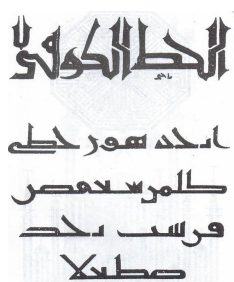 الخط الكوفي
ابجد هوز حطي
كلمن سعفص
قرشت ثخذ
ضظغلا